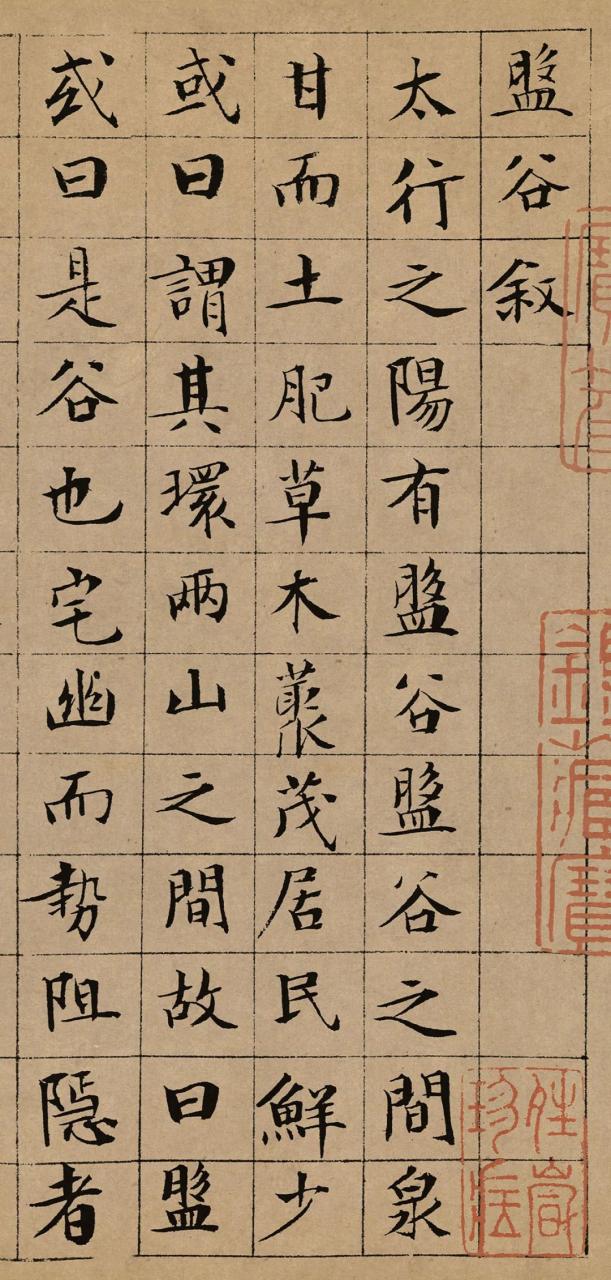 盤谷叙
太行之陽有盤谷盤谷之間泉
甘而土肥草木藂茂居民鮮少
或曰謂其環兩山之間故曰盤
或曰是谷也宅幽而勢阻隱者